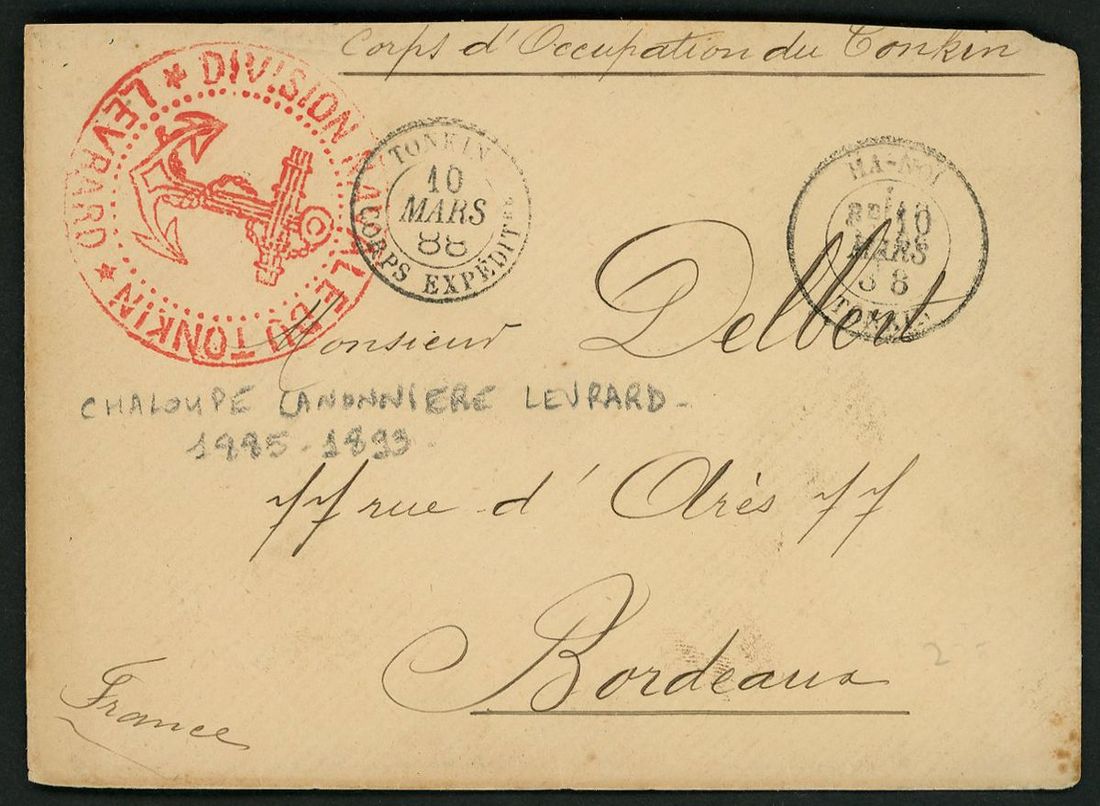 Corps d'Occupation du Tonkin
★ DIVISION NAVALE DU TONKIN ★ LEVRARD
TONKIN
10
MARS
88
CORPS EXPÉDITRE
HA-NOI
10
MARS
88
TONKIN
Monsieur Delbert
CHALOUPE CANONNIERE LEVRARD -
1885 - 1893 -
77 rue d'Arès 77
Bordeaux
2
France